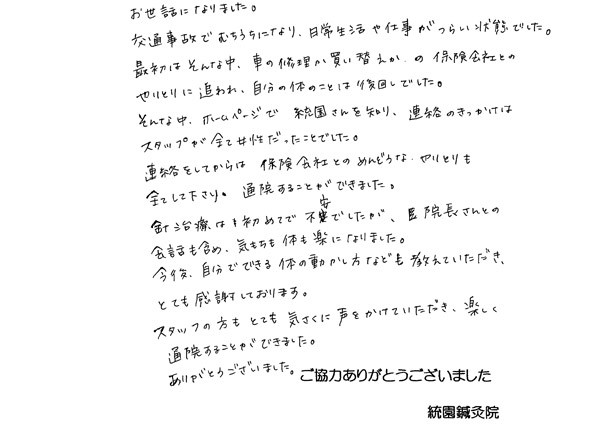 お世話になりました。
交通事故でむちうちになり、日常生活や仕事がつらい状態でした。
最初はそんな中、車の修理か買い替えか の 保険会社との
やりとりに追われ、自分の体のことは後回しでした。
そんな中、ホームページで 統園さんを知り、連絡のきっかけは
スタッフが全て女性だったことでした。
連絡をしてからは 保険会社とのめんどうな やりとりも
全てして下さり。通院することができました。
針治療は 初めてで 不安でしたが、院長さんとの
会話も含め、気もちも 体も楽になりました。
今後、自分でできる 体の動かし方なども 教えていただき、
とても感謝しております。
スタッフの方も とても 気さくに 声をかけていただき、楽しく
通院することができました。
ありがとうございました。
ご協力ありがとうございました
統園鍼灸院